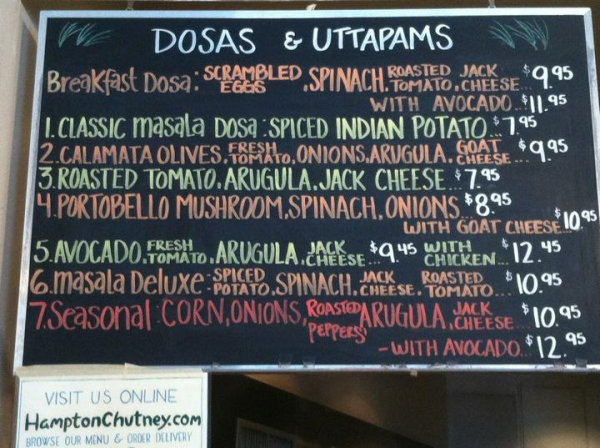 DOSAS & UTTAPAMS
Breakfast Dosa: SCRAMBLED EGGS, SPINACH, ROASTED TOMATO, JACK CHEESE... $9.95
WITH AVOCADO... $11.95
1. CLASSIC masala Dosa: SPICED INDIAN POTATO... $7.95
2. CALAMATA OLIVES, FRESH TOMATO, ONIONS, ARUGULA, GOAT CHEESE... $9.95
3. ROASTED TOMATO, ARUGULA, JACK CHEESE... $7.95
4. PORTOBELLO MUSHROOM, SPINACH, ONIONS... $8.95
WITH GOAT CHEESE... $10.95
5. AVOCADO, FRESH TOMATO, ARUGULA, JACK CHEESE... $9.45 WITH CHICKEN... $12.45
6. masala Deluxe: SPICED POTATO, SPINACH, JACK CHEESE, ROASTED TOMATO... $10.95
7. Seasonal: CORN, ONIONS, ROASTED PEPPERS, ARUGULA, JACK CHEESE... $10.95
-WITH AVOCADO... $12.95
VISIT US ONLINE
HamptonChutney.com
BROWSE OUR MENU & ORDER DELIVERY